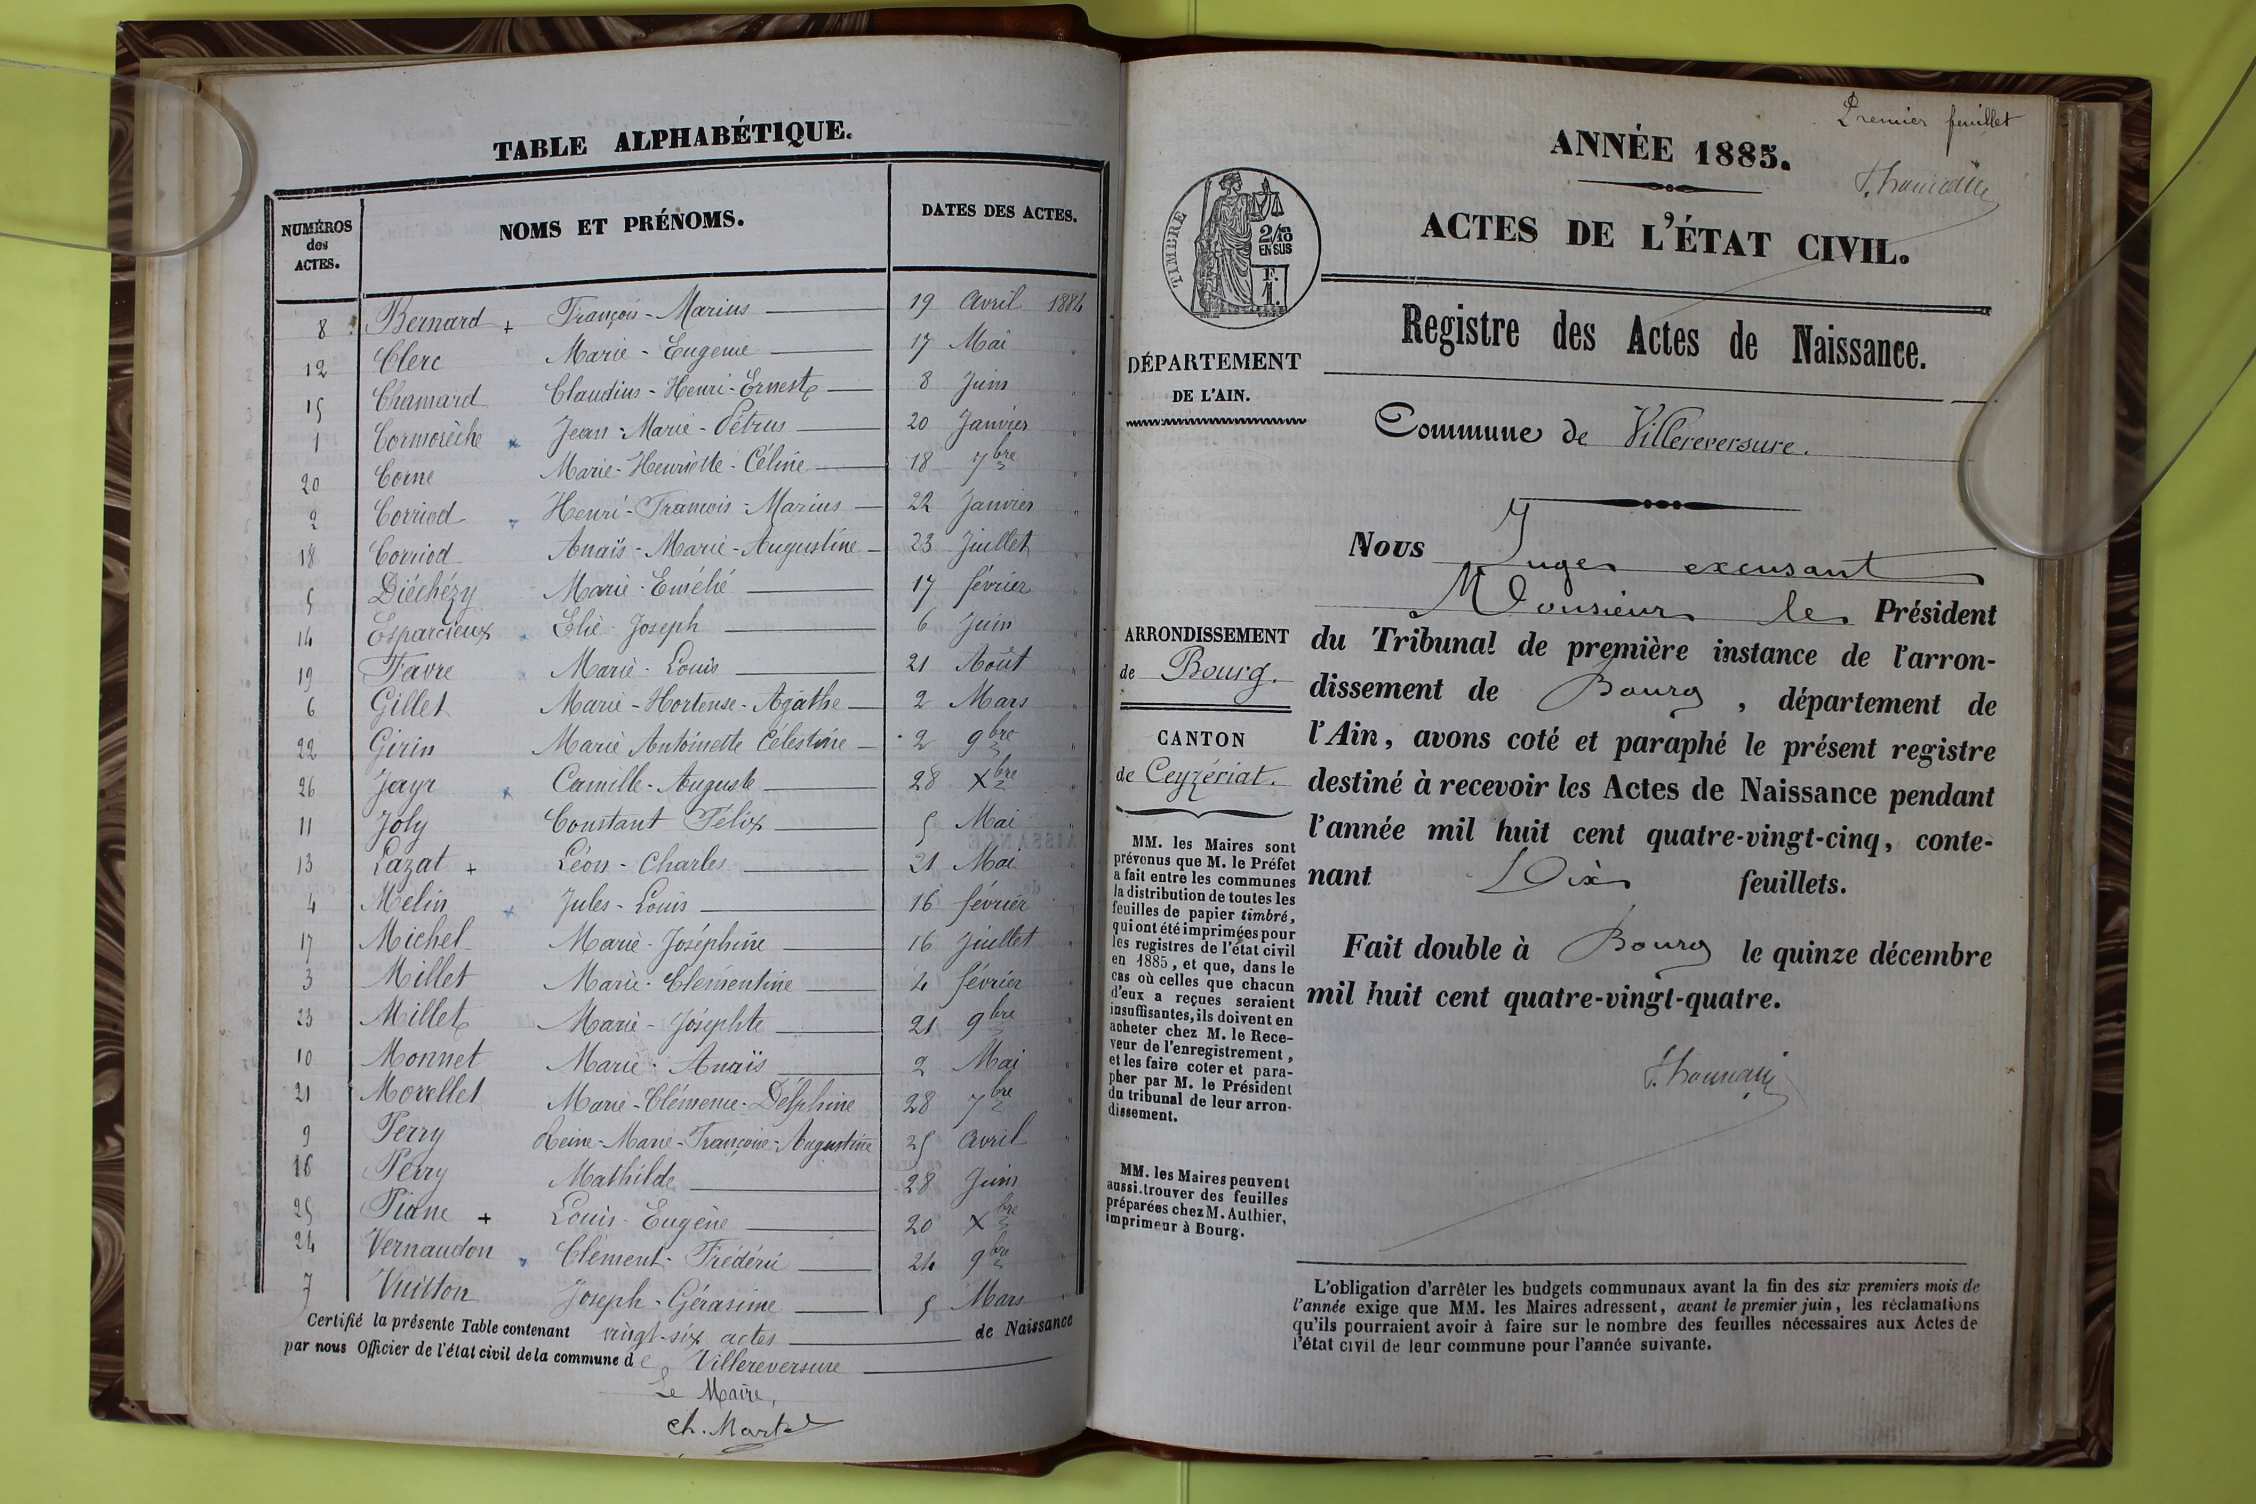 TABLE ALPHABÉTIQUE.
NUMÉROS des ACTES. NOMS ET PRÉNOMS. DATES DES ACTES.
8 Bernard + François-Marius 19 Avril 1884
12 Clerc Marie-Eugenie 17 Mai "
15 Chamard Claudius-Henri-Ernest 8 Juin "
1 Cormorèche x Jean-Marie-Pétrus 20 Janvier "
20 Corne Marie-Henriette-Céline 18 7bre "
2 Corriod Henri-François-Marius 22 Janvier "
18 Corriod Anaïs-Marie-Augustine 23 Juillet "
5 Diéchézy Marie-Emélie 17 février "
14 Esparcieux Elie-Joseph 6 Juin "
19 Favre Marie-Louis 21 Août "
6 Gillet Marie-Hortense-Agathe 2 Mars "
22 Girin Marie Antoinette Célestine 2 9bre "
26 Jayr x Camille-Auguste 28 Xbre "
11 Joly Constant Félix 5 Mai "
13 Lazat + Léon-Charles 21 Mai "
4 Melin x Jules-Louis 16 février "
17 Michel Marie-Joséphine 16 Juillet "
3 Millet Marie-Clémentine 4 février "
23 Millet Marie-Josephte 21 9bre "
10 Monnet Marie-Anaïs 2 Mai "
21 Morellet Marie-Clémence-Delphine 28 7bre "
9 Perry Reine-Marie-Françoise-Augustine 25 Avril "
16 Perry Mathilde 28 Juin "
25 Piane + Louis-Eugène 20 Xbre "
24 Vernaudon Clément-Frédéric 24 9bre "
7 Vuitton Joseph-Gérasime 5 Mars "
Certifié la présente Table contenant vingt-six actes de Naissance
par nous Officier de l'état civil de la commune de Villereversure
Le Maire,
Premier feuillet
ANNÉE 1885.
ACTES DE L'ÉTAT CIVIL.
TIMBRE
2/10
EN SUS
F.
1.
Registre des Actes de Naissance.
DÉPARTEMENT
DE L'AIN.
Commune de Villereversure.
ARRONDISSEMENT
de Bourg.
CANTON
de Ceyzériat.
MM. les Maires sont
prévenus que M. le Préfet
a fait entre les communes
la distribution de toutes les
feuilles de papier timbré,
qui ont été imprimées pour
les registres de l'état civil
en 1885, et que, dans le
cas où celles que chacun
d'eux a reçues seraient
insuffisantes, ils doivent en
acheter chez M. le Rece-
veur de l'enregistrement,
et les faire coter et para-
pher par M. le Président
du tribunal de leur arron-
dissement.
MM. les Maires peuvent
aussi trouver des feuilles
préparées chez M. Authier,
imprimeur à Bourg.
Nous Juge excusant
Monsieur le Président
du Tribunal de première instance de l'arron-
dissement de Bourg, département de
l'Ain, avons coté et paraphé le présent registre
destiné à recevoir les Actes de Naissance pendant
l'année mil huit cent quatre-vingt-cinq, conte-
nant Dix feuillets.
Fait double à Bourg le quinze décembre
mil huit cent quatre-vingt-quatre.
L'obligation d'arrêter les budgets communaux avant la fin des six premiers mois de
l'année exige que MM. les Maires adressent, avant le premier juin, les réclamations
qu'ils pourraient avoir à faire sur le nombre des feuilles nécessaires aux Actes de
l'état civil de leur commune pour l'année suivante.